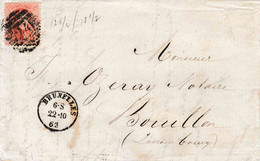 12½/12½
Monsieur
Ozeray Notaire
Bouillon
(Luxembourg)
BRUXELLES
6-S
22-10
63